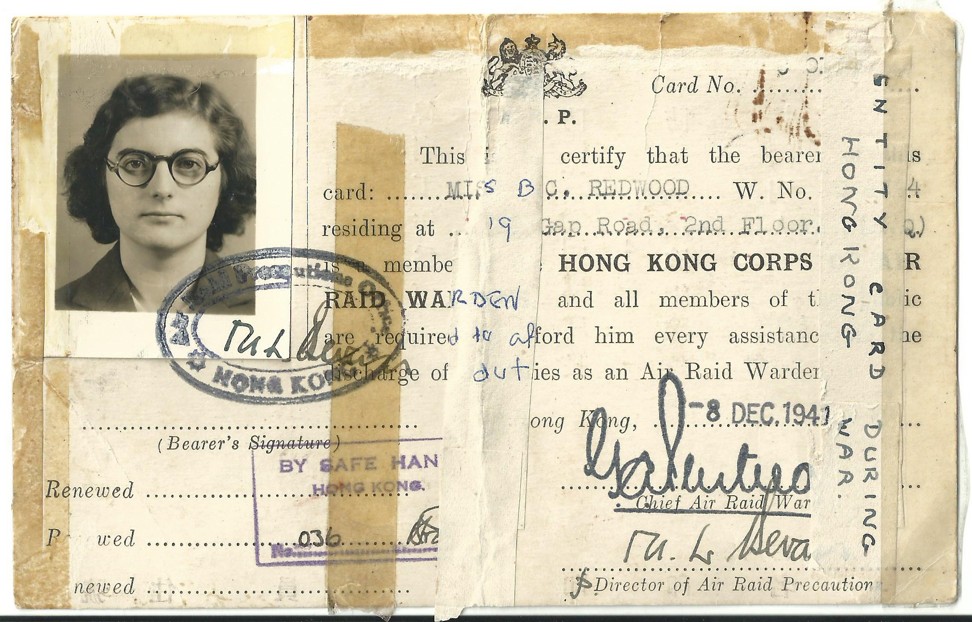 Card No.
. P.
This certify that the bearer
card: MISS B C. REDWOOD W. No. 4
residing at 19 Gap Road, 2nd Floor.
is a membe HONG KONG CORPS
RAID WARDEN and all members of
are required to afford him every assistanc
discharge of duties as an Air Raid Warden
ong Kong, -8 DEC. 1941
Chief Air Raid War
Director of Air Raid Precaution
HONG KONG
(Bearer's Signature)
BY SAFE HAN
HONG KONG.
No. 036
Renewed
wed
newed
ENTITY CARD DURING
HONG KONG WAR.